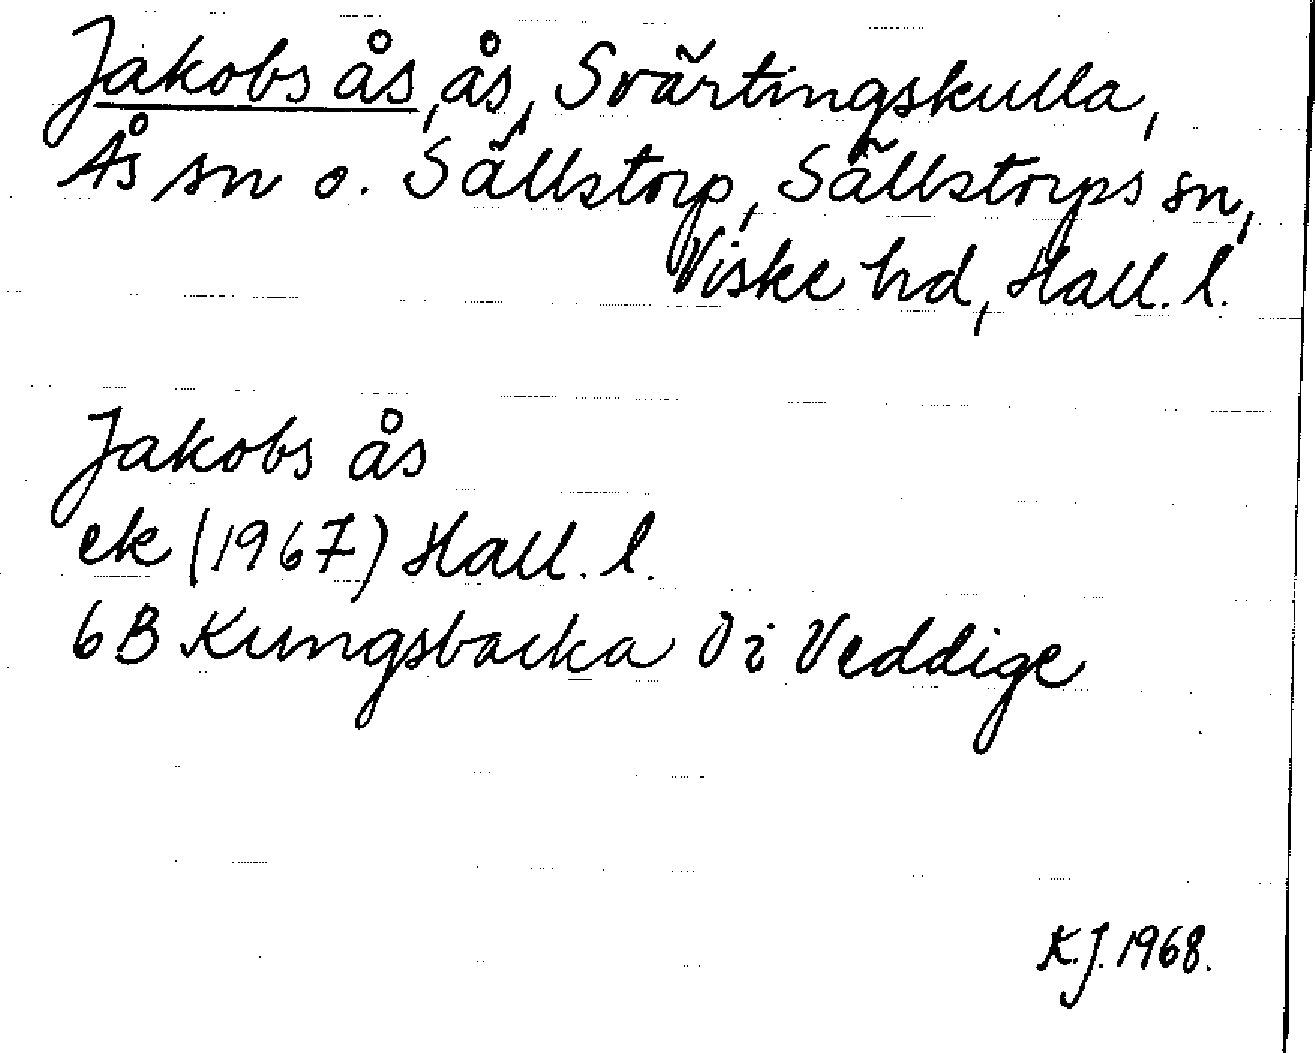 Jakobs ås, ås, Svärtingskulla,
Ås sn o. Sällstorp, Sällstorps sn,
Viske hd, Hall. l.
Jakobs ås
ek (1967) Hall. l.
6B Kungsbacka 0 i Veddige
K.J. 1968.